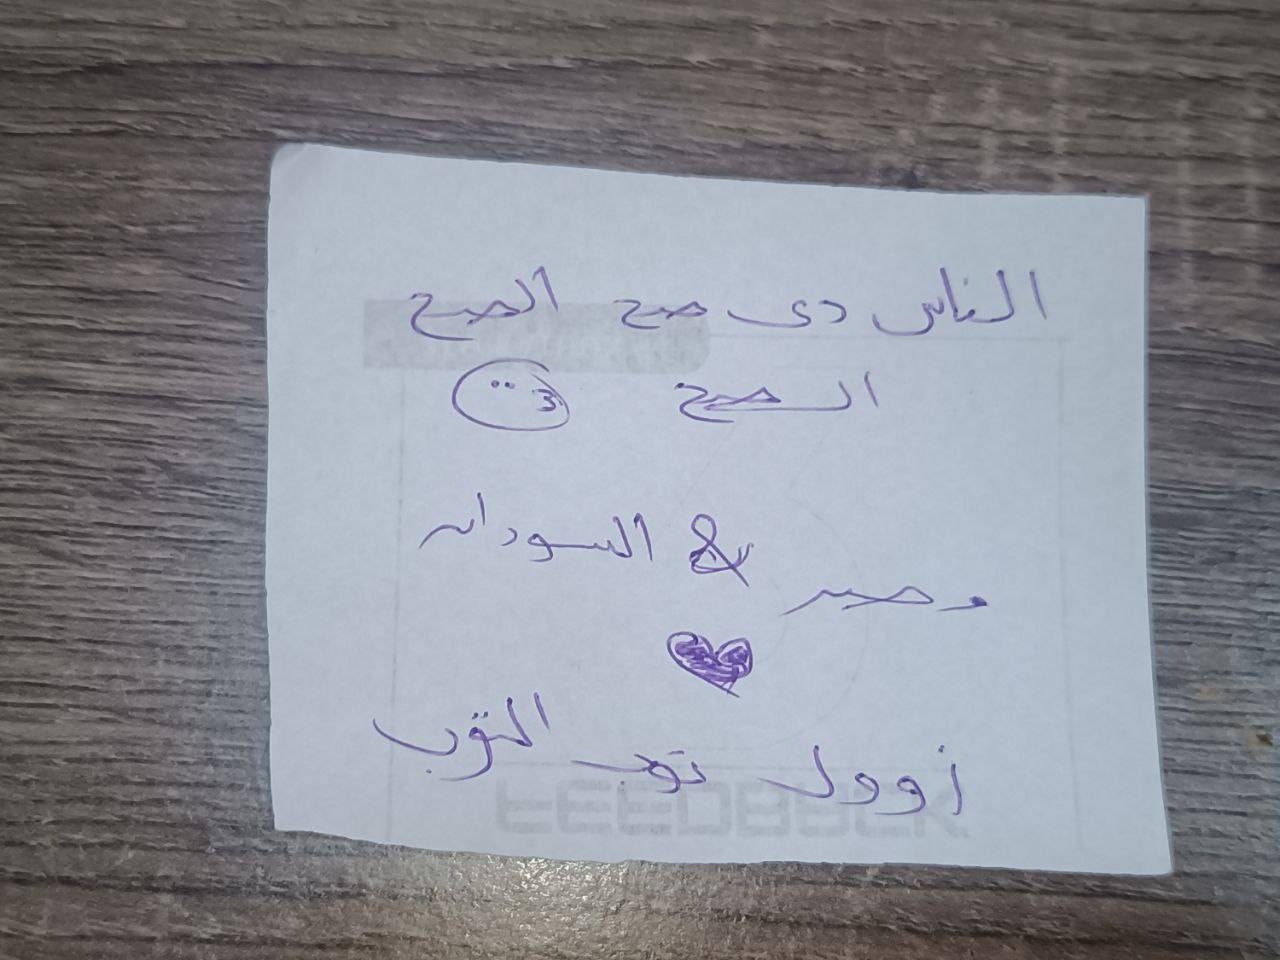 الناس دى صح الصح
الصح
مصر & السودان
زوول توب التوب
FEEDBACK